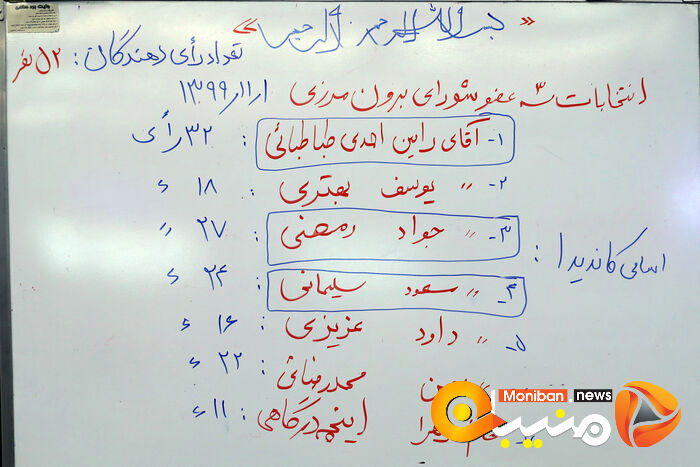 « بسم الله الرحمن الرحیم »
تعداد رأی دهندگان: ۵۲ نفر
انتخابات سه عضو شورای برون مرزی ۱۳۹۹/۱/۱
اسامی کاندیدا :
۱- آقای رامین احمدی طباطبائی : ۳۲ رأی
۲- " یوسف بهتری : ۱۸ ء
۳- " جواد رمضی : ۲۷ "
۴- " سعود سلیمانی : ۲۴ ء
۵- " داود عزیزی : ۱۶ ء
محمدرضائی : ۲۲ ء
اینچه درگاهی : ۱۱ ء
Moniban.news
منیبان